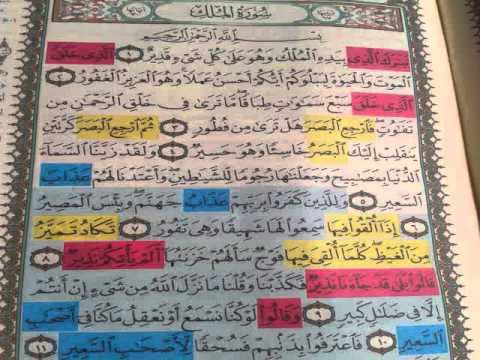 سُورَةُ المُلْكِ
بِسْمِ اللَّهِ الرَّحْمَنِ الرَّحِيمِ
تَبَٰرَكَ الَّذِي بِيَدِهِ الْمُلْكُ وَهُوَ عَلَىٰ كُلِّ شَيْءٍ قَدِيرٌ ۝١ الَّذِي خَلَقَ
الْمَوْتَ وَالْحَيَوٰةَ لِيَبْلُوَكُمْ أَيُّكُمْ أَحْسَنُ عَمَلًا وَهُوَ الْعَزِيزُ الْغَفُورُ ۝٢
الَّذِي خَلَقَ سَبْعَ سَمَٰوَٰتٍ طِبَاقًا مَّا تَرَىٰ فِي خَلْقِ الرَّحْمَٰنِ مِن
تَفَٰوُتٍ فَارْجِعِ الْبَصَرَ هَلْ تَرَىٰ مِن فُطُورٍ ۝٣ ثُمَّ ارْجِعِ الْبَصَرَ كَرَّتَيْنِ
يَنقَلِبْ إِلَيْكَ الْبَصَرُ خَاسِئًا وَهُوَ حَسِيرٌ ۝٤ وَلَقَدْ زَيَّنَّا السَّمَاءَ
الدُّنْيَا بِمَصَٰبِيحَ وَجَعَلْنَٰهَا رُجُومًا لِّلشَّيَٰطِينِ وَأَعْتَدْنَا لَهُمْ عَذَابَ
السَّعِيرِ ۝٥ وَلِلَّذِينَ كَفَرُوا بِرَبِّهِمْ عَذَابُ جَهَنَّمَ وَبِئْسَ الْمَصِيرُ
۝٦ إِذَا أُلْقُوا فِيهَا سَمِعُوا لَهَا شَهِيقًا وَهِيَ تَفُورُ ۝٧ تَكَادُ تَمَيَّزُ
مِنَ الْغَيْظِ كُلَّمَا أُلْقِيَ فِيهَا فَوْجٌ سَأَلَهُمْ خَزَنَتُهَا أَلَمْ يَأْتِكُمْ نَذِيرٌ ۝٨
قَالُوا بَلَىٰ قَدْ جَاءَنَا نَذِيرٌ فَكَذَّبْنَا وَقُلْنَا مَا نَزَّلَ اللَّهُ مِن شَيْءٍ إِنْ أَنتُمْ
إِلَّا فِي ضَلَٰلٍ كَبِيرٍ ۝٩ وَقَالُوا لَوْ كُنَّا نَسْمَعُ أَوْ نَعْقِلُ مَا كُنَّا فِي أَصْحَٰبِ
السَّعِيرِ ۝١٠ فَاعْتَرَفُوا بِذَنبِهِمْ فَسُحْقًا لِّأَصْحَٰبِ السَّعِيرِ ۝١١